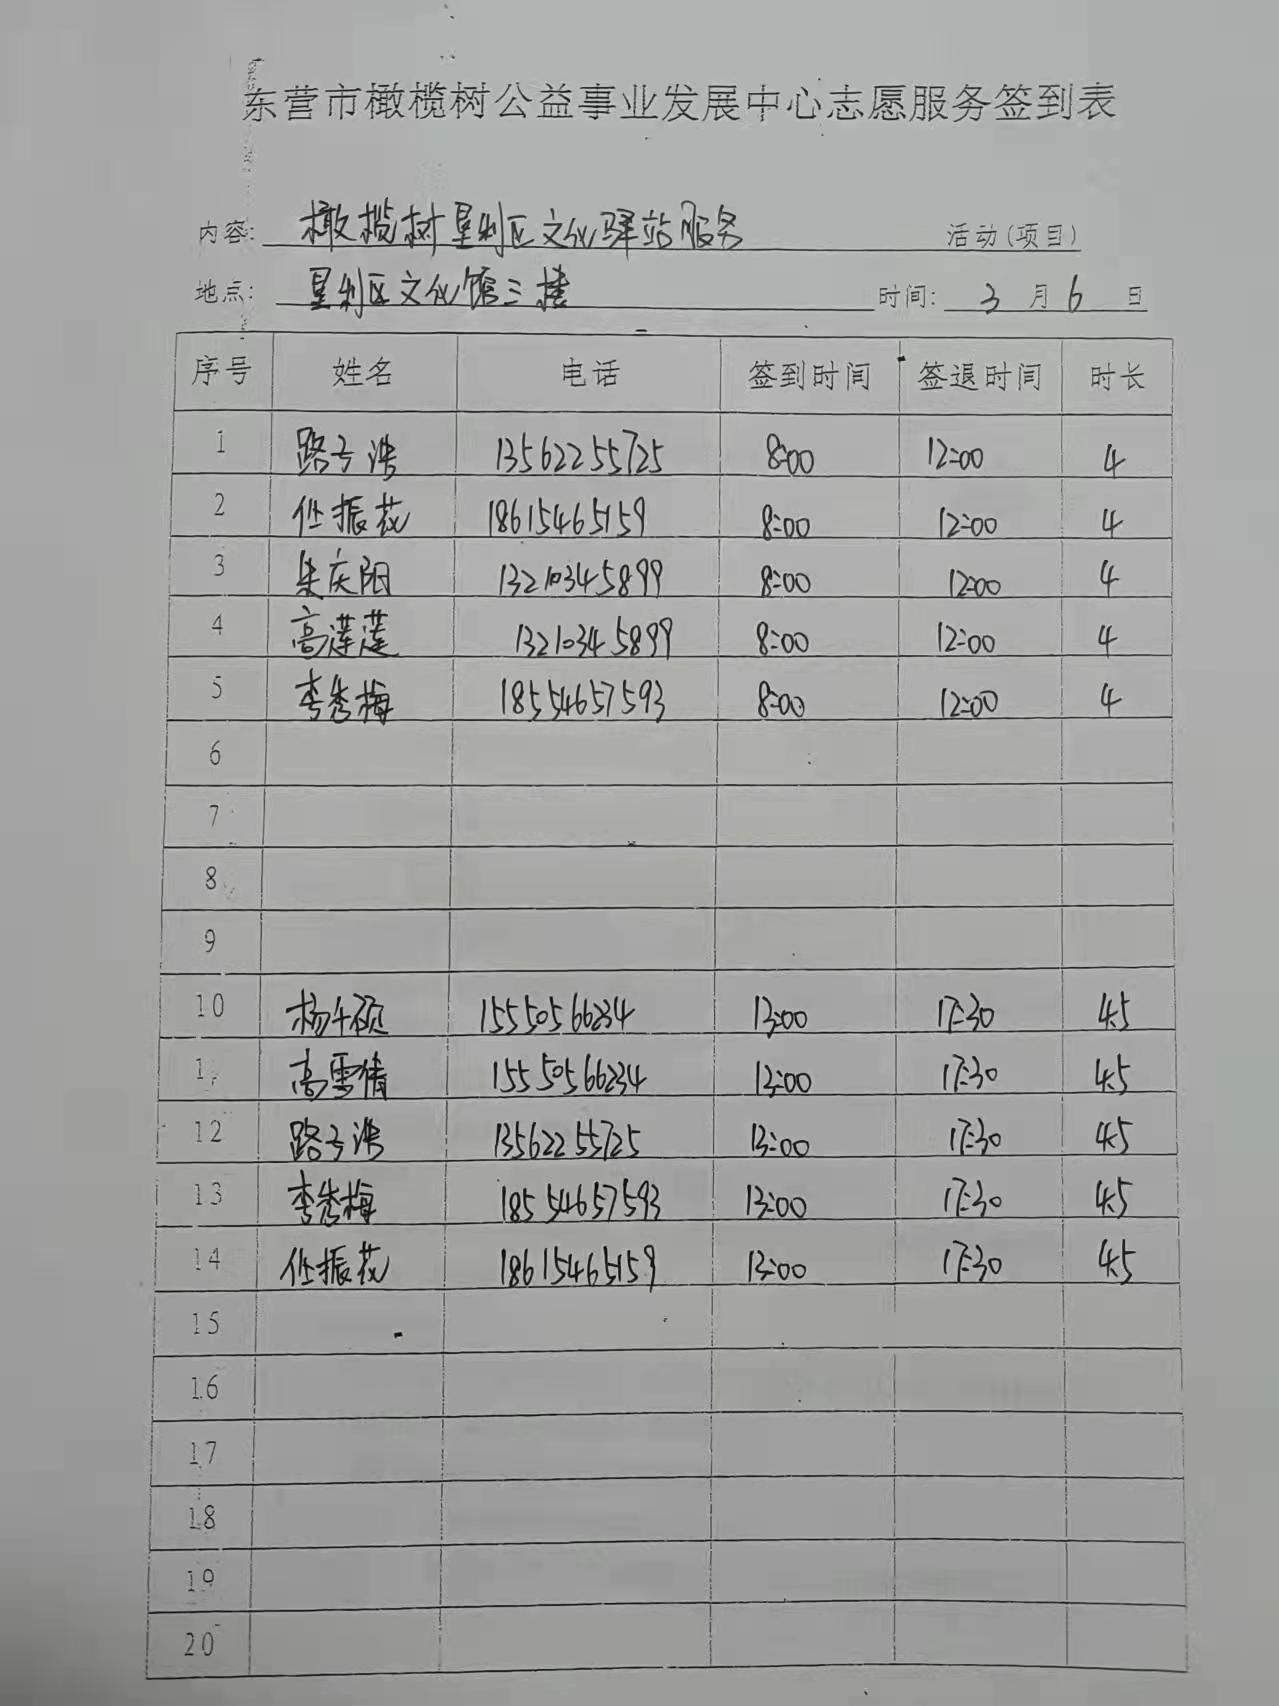 东营市橄榄树公益事业发展中心志愿服务签到表
内容: 橄榄树垦利区文化驿站服务 活动(项目)
地点: 垦利区文化馆三楼 时间: 3 月 6 日
序号 姓名 电话 签到时间 签退时间 时长
1 路兮浩 13562255725 8:00 12:00 4
2 任振花 18615465159 8:00 12:00 4
3 朱庆阳 13210345899 8:00 12:00 4
4 高莲莲 13210345899 8:00 12:00 4
5 李秀梅 18554657593 8:00 12:00 4
6
7
8
9
10 杨千硕 15550566234 13:00 17:30 4.5
11 高雪倩 15550566234 13:00 17:30 4.5
12 路兮浩 13562255725 13:00 17:30 4.5
13 李秀梅 18554657593 13:00 17:30 4.5
14 任振花 18615465159 13:00 17:30 4.5
15
16
17
18
19
20